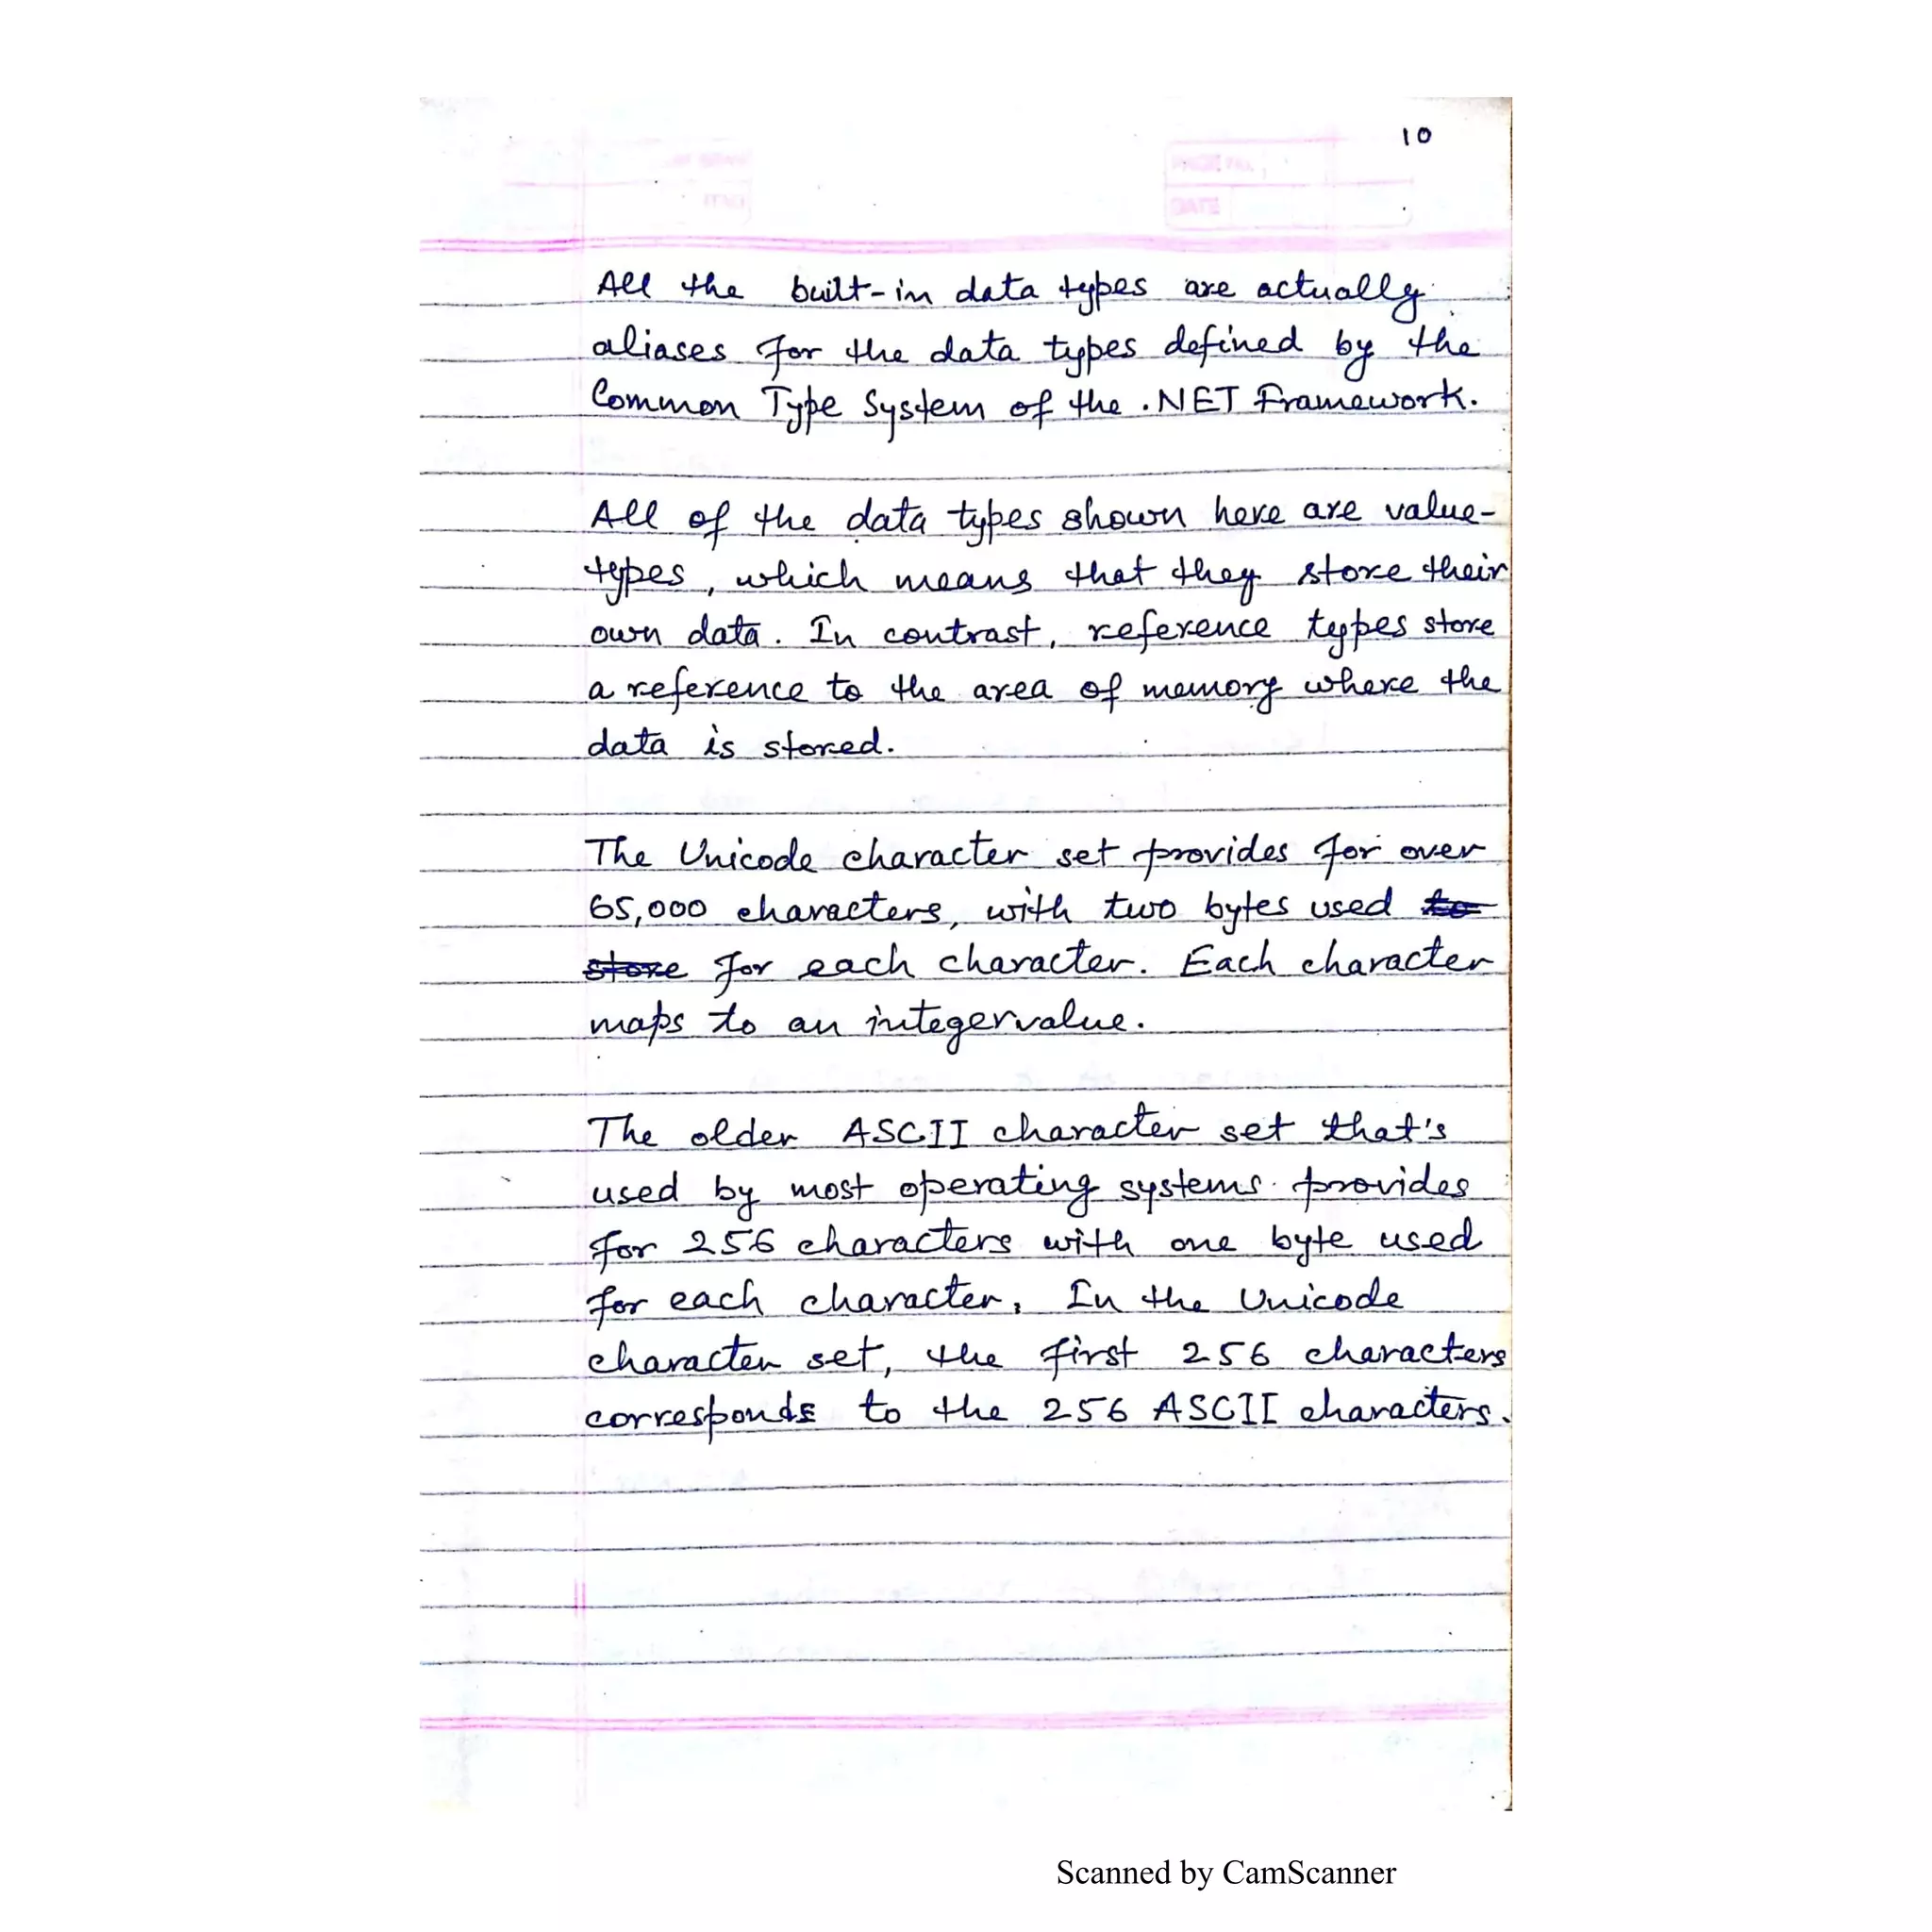 10
PAGE No.
DATE
All the built-in data types are actually
aliases for the data types defined by the
Common Type System of the .NET Framework.
All of the data types shown here are value-
types, which means that they store their
own data. In contrast, reference types store
a reference to the area of memory where the
data is stored.
The Unicode character set provides for over
65,000 characters, with two bytes used to
store for each character. Each character
maps to an integervalue.
The older ASCII character set that's
used by most operating systems provides
for 256 characters with one byte used
for each character. In the Unicode
character set, the first 256 characters
corresponds to the 256 ASCII characters.
Scanned by CamScanner